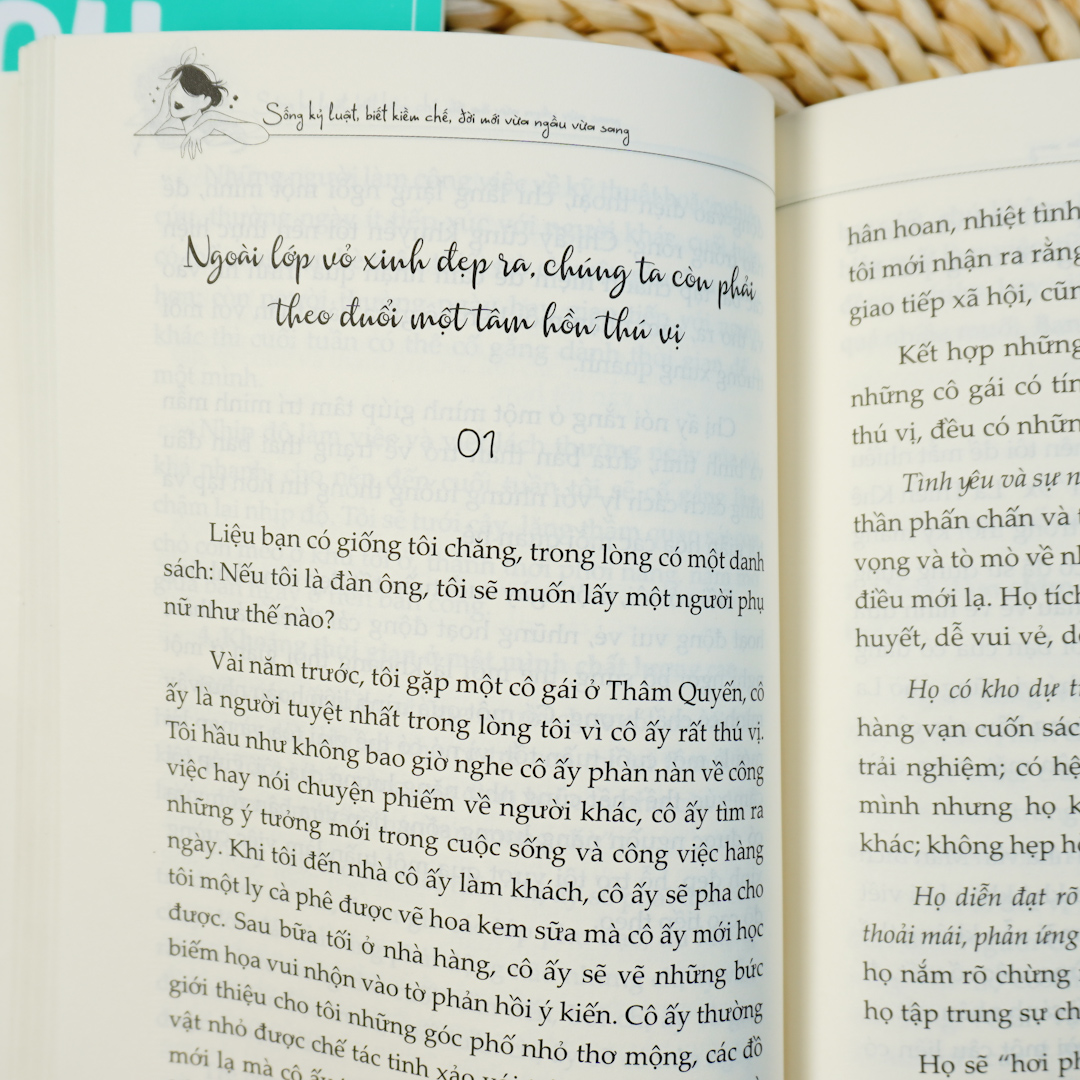 Sống kỷ luật, biết kiềm chế, đời mới vừa ngầu vừa sang
Ngoài lớp vỏ xinh đẹp ra, chúng ta còn phải
theo đuổi một tâm hồn thú vị
01
Liệu bạn có giống tôi chăng, trong lòng có một danh
sách: Nếu tôi là đàn ông, tôi sẽ muốn lấy một người phụ
nữ như thế nào?
Vài năm trước, tôi gặp một cô gái ở Thâm Quyến, cô
ấy là người tuyệt nhất trong lòng tôi vì cô ấy rất thú vị.
Tôi hầu như không bao giờ nghe cô ấy phàn nàn về công
việc hay nói chuyện phiếm về người khác, cô ấy tìm ra
những ý tưởng mới trong cuộc sống và công việc hàng
ngày. Khi tôi đến nhà cô ấy làm khách, cô ấy sẽ pha cho
tôi một ly cà phê được vẽ hoa kem sữa mà cô ấy mới học
được. Sau bữa tối ở nhà hàng, cô ấy sẽ vẽ những bức
biếm họa vui nhộn vào tờ phản hồi ý kiến. Cô ấy thường
giới thiệu cho tôi những góc phố nhỏ thơ mộng, các đồ
vật nhỏ được chế tác tinh xảo
mới lạ mà cô
hân hoan, nhiệt tình
tôi mới nhận ra rằng
giao tiếp xã hội, cũn
Kết hợp những
những cô gái có tín
thú vị, đều có nhữn
Tình yêu và sự n
thần phấn chấn và t
vọng và tò mò về nh
điều mới lạ. Họ tích
huyết, dễ vui vẻ, d
Họ có kho dự t
hàng vạn cuốn sác
trải nghiệm; có hệ
mình nhưng họ k
khác; không hẹp h
Họ diễn đạt rõ
thoải mái, phản ứng
họ nắm rõ chừng
họ tập trung sự ch
Họ sẽ “hơi ph